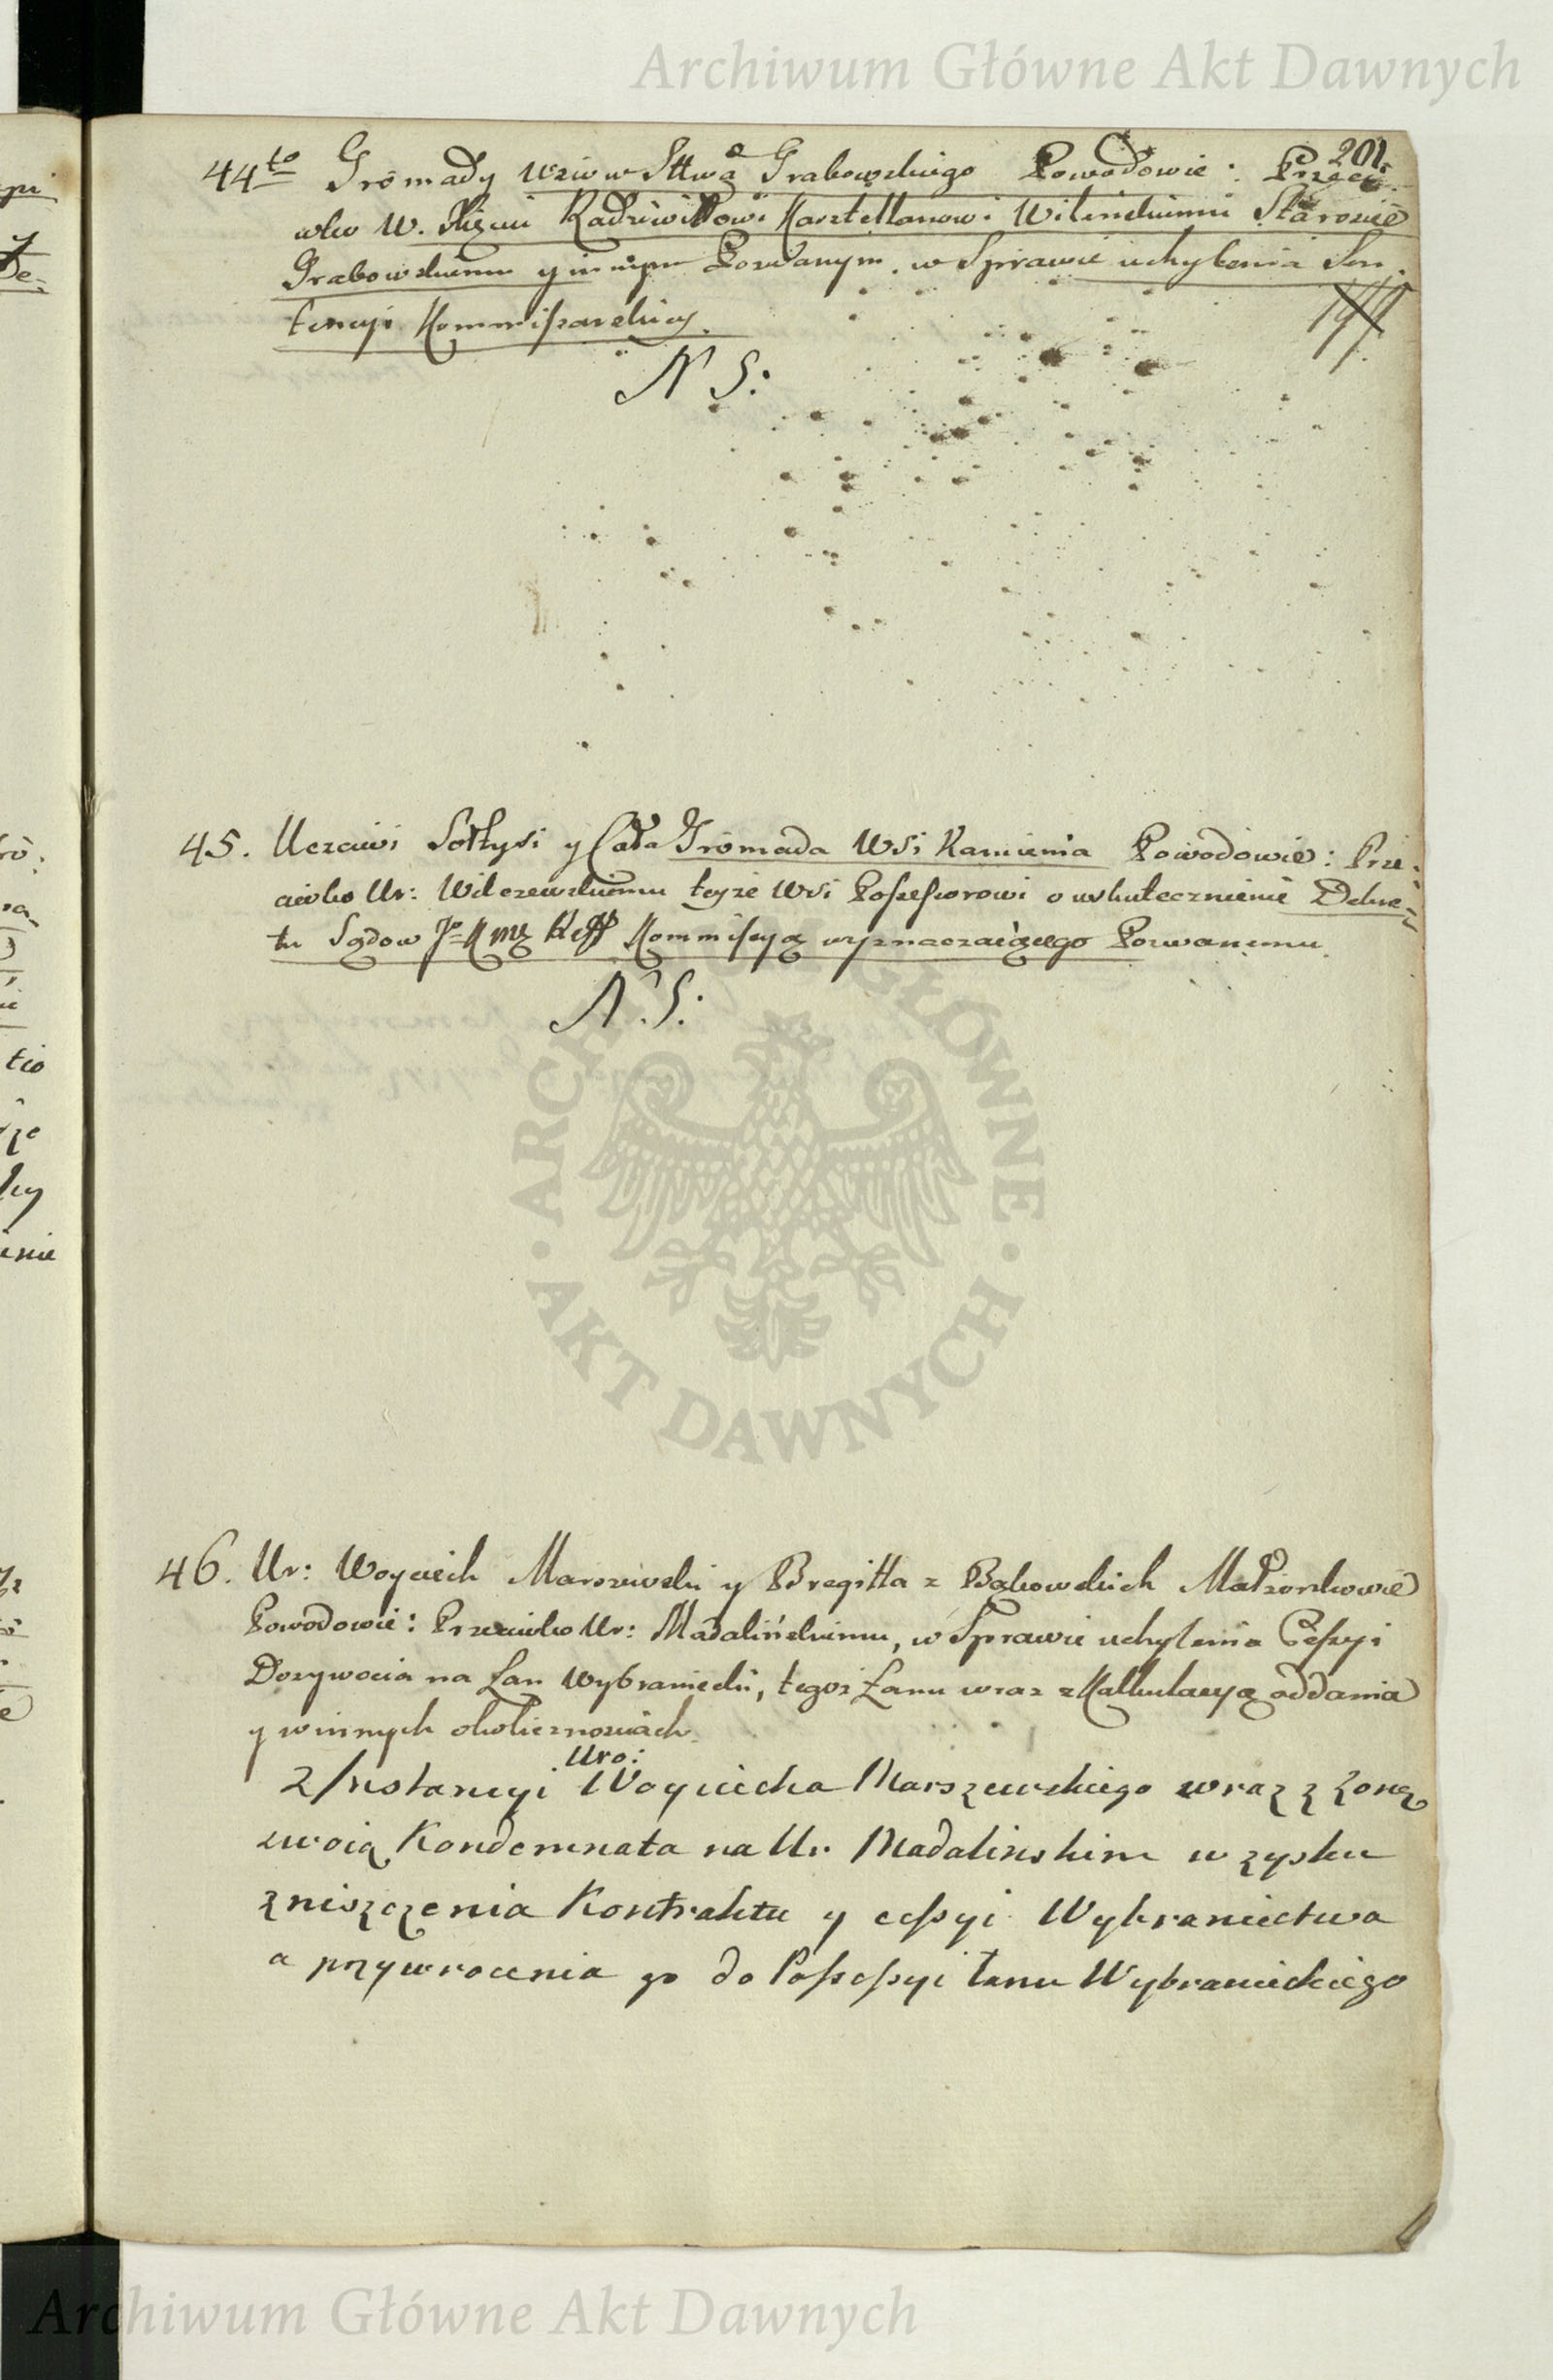 Archiwum Główne Akt Dawnych
201.
44to Gromady Wsiow Sttwa Grabowskiego Powodowie: Przeci-
wko W. Xięciu Radziwiłłowi Kasztellanowi Wilenskiemu Staroscie
Grabowskiemu y innym Pozwanym. w Sprawie uchylenia Sen-
tencyi Kommissarskiey.
199
N S:
45. Uczciwi Sołtysi y Cała Gromada Wsi Kamienia Powodowie: Prze-
ciwko Ur: Wilczewskiemu teyże Wsi Possessorowi o uskutecznienie Dekre-
tu Sądow J K Reff Kommissyą wyznaczaiącego Pozwanemu.
N. S:
ARCHIWUM GŁÓWNE AKT DAWNYCH
46. Ur: Woyciech Marszewski y Bregitta z Bąkowskich Małżonkowie
Powodowie: Przeciwko Ur: Madalińskiemu, w Sprawie uchylenia Cessyi
Dożywocia na Łan Wybraniecki, tegoż Łanu wraz z Kalkulacyą oddania
y w innych okolicznosciach.
Uro:
Z Instancyi Woyciecha Marszewskiego wraz z żoną
swoią Kondemnata na Ur. Madalinskim w zysku
zniszczenia Kontraktu y cessyi Wybraniectwa
a przywrocenia go do Possessyi Łanu Wybranieckiego
Archiwum Główne Akt Dawnych